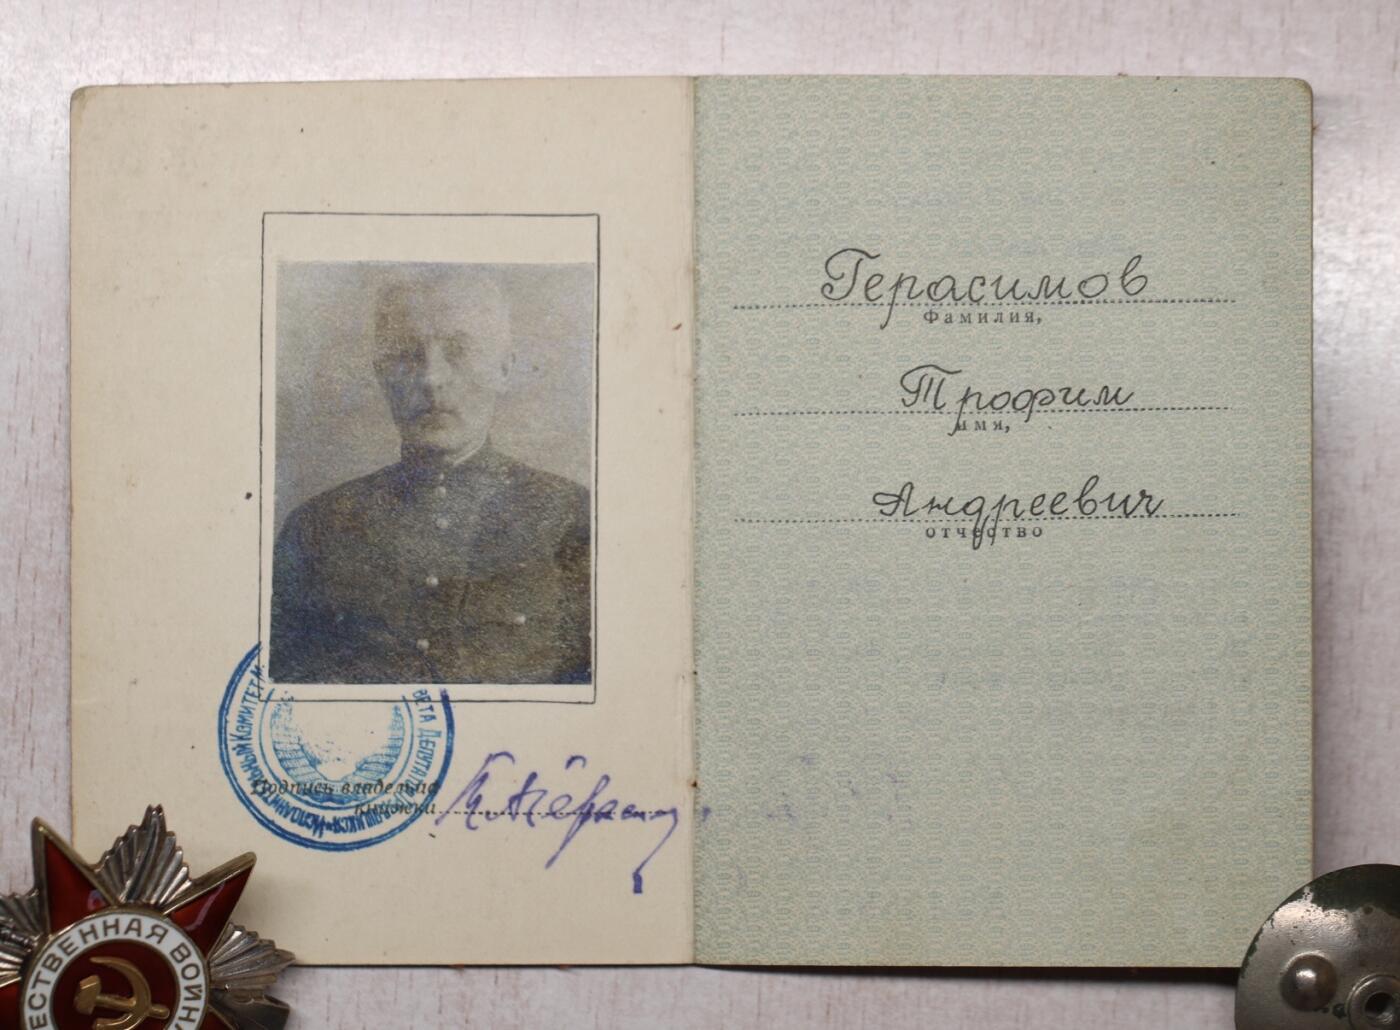 Подпись владельца
книжки
ИСПОЛНИТЕЛЬНЫЙ КОМИТЕТ
ВЕТА ДЕПУТАТ
Герасимов
Фамилия,
Трофим
имя,
Андреевич
отчество
ЕСТВЕННАЯ ВОЙНА